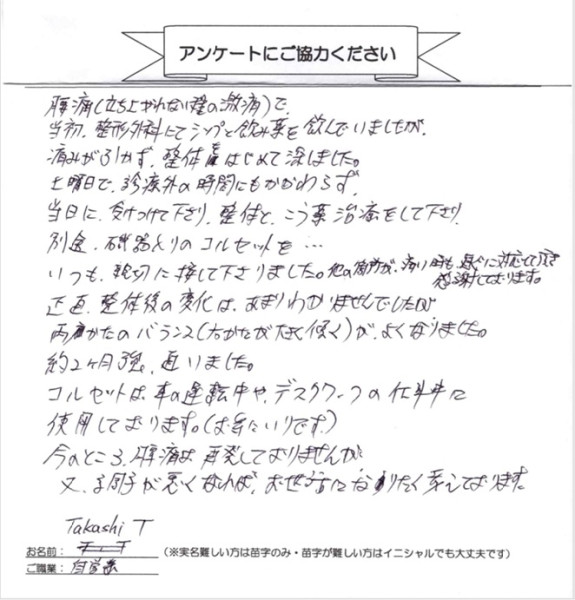 アンケートにご協力ください
腰痛(立ち上がれない程の激痛)で、
当初、整形外科にてシップと飲み薬を飲んでいましたが、
痛みが引かず、整体をはじめて試しました。
土曜日で、診療外の時間にもかかわらず、
当日に、受けつけて下さり、整体と、こう薬治療をして下さり、
別途、磁器入りのコルセットを…
いつも、親切に接して下さりました。他の箇所が、痛い時も、直ぐに対応して下さり
感謝しております。
正直、整体後の変化は、あまりわかりませんでしたが
両肩かたのバランス(片かたが大きく傾く)が、よくなりました。
約2ヶ月強、通いました。
コルセットは、車の運転中や、デスクワークの仕事中に
使用しております。(お気にいりです)
今のところ、腰痛は、再発しておりませんが、
又、調子が悪くなれば、お世話になりたく考えております。
Takashi T
お名前: (※実名難しい方は苗字のみ・苗字が難しい方はイニシャルでも大丈夫です)
ご職業: 自営業